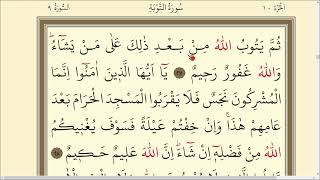 الجزء ١٠ سورة التوبة السورة ٩
ثُمَّ يَتُوبُ اللّٰهُ مِنْ بَعْدِ ذٰلِكَ عَلٰى مَنْ يَشَٓاءُۜ
وَاللّٰهُ غَفُورٌ رَحٖيمٌ ﴿٢٧﴾ يَٓا اَيُّهَا الَّذٖينَ اٰمَنُٓوا اِنَّمَا
الْمُشْرِكُونَ نَجَسٌ فَلَا يَقْرَبُوا الْمَسْجِدَ الْحَرَامَ بَعْدَ
عَامِهِمْ هٰذَاۚ وَاِنْ خِفْتُمْ عَيْلَةً فَسَوْفَ يُغْنٖيكُمُ
اللّٰهُ مِنْ فَضْلِهٖٓ اِنْ شَٓاءَۜ اِنَّ اللّٰهَ عَلٖيمٌ حَكٖيمٌ ﴿٢٨﴾